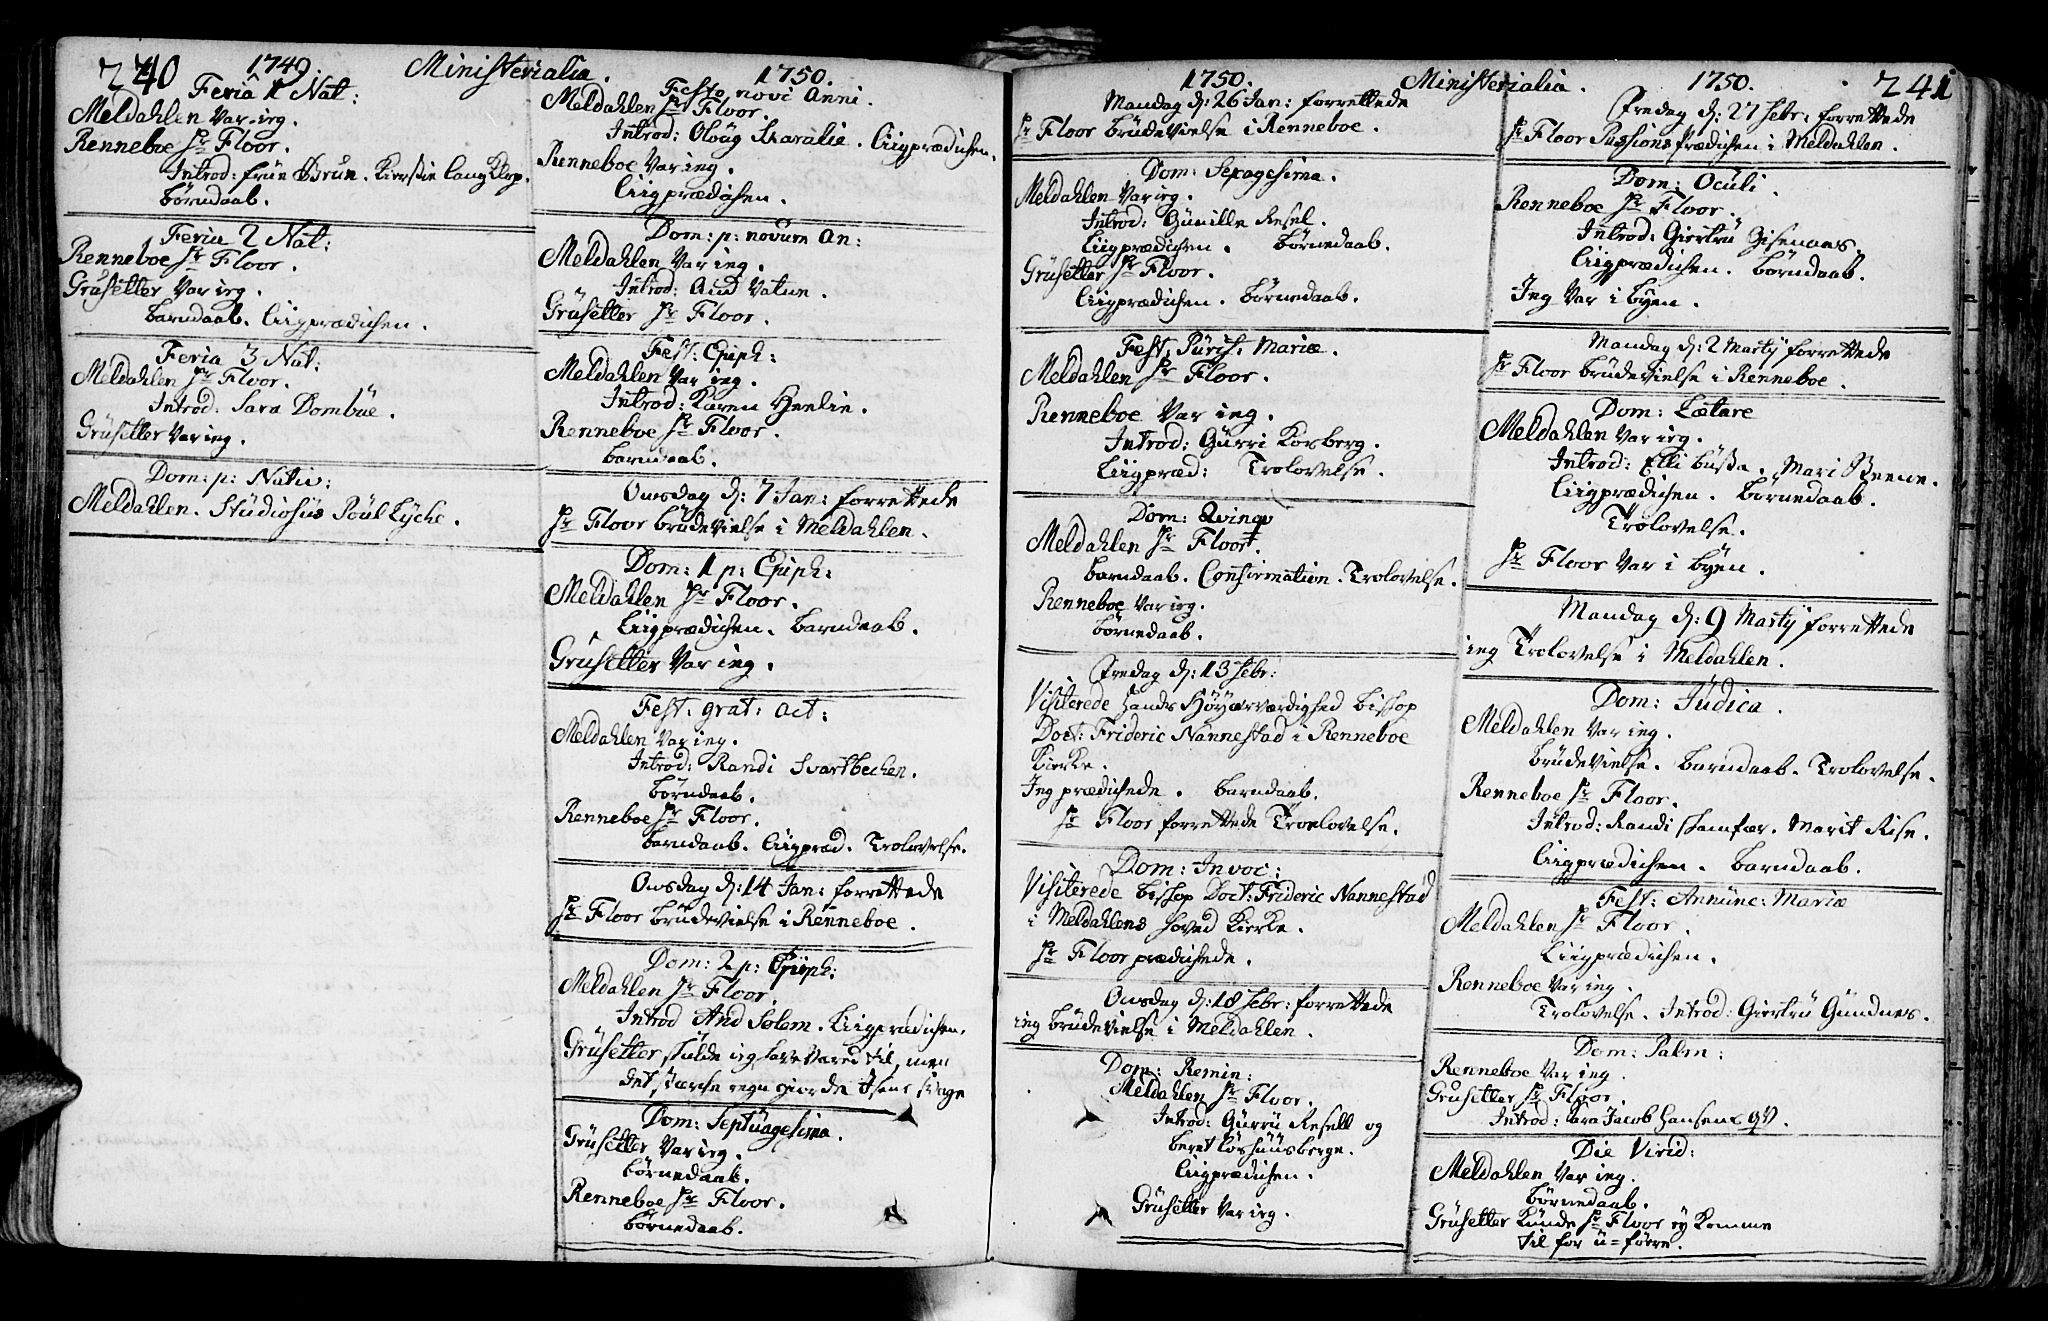 240 1749. Ministerialia. 1750.
Feria 1 Nat:
Meldahlen Var ieg.
Renneboe Hr Floor.
Introd: frue Brun. Kierstie
Börndaab.
Feria 2 Nat:
Renneboe Hr Floor.
Grüsetter Var ieg.
Barndaab. Liigprædichen.
Feria 3 Nat:
Meldahlen Hr Floor.
Introd: Sara Dombüe.
Grüsetter Var ieg.
Dom: p: Nativ:
Meldahlen. Stüdiosüs Poül Lyche.
Festo novi Anni.
Meldahlen Hr Floor.
Introd: Oloüg Liigprædichen.
Renneboe Var ieg.
Liigprædichen.
Dom: p: novum An:
Meldahlen Var ieg.
Introd: Aud Vatne.
Grüsetter Hr Floor.
Fest: Epiph:
Meldahlen Var ieg.
Introd: Karen Heelie.
Renneboe Hr Floor.
Barndaab.
Onsdag d: 7 Jan: forrettede
Hr Floor brüdevielse i Meldahlen.
Dom: 1 p: Epiph:
Meldahlen Hr Floor.
Liigprædichen. Barndaab.
Grüsetter Var ieg.
Fest: grat: act:
Meldahlen Var ieg.
Introd: Randi Svartbechen.
Börndaab.
Renneboe Hr Floor.
Barndaab. Liigpræd. Trolovelse.
Onsdag d: 14 Jan: forrettede
Hr Floor brüdevielse i Renneboe.
Dom: 2 p: Epiph:
Meldahlen Hr Floor.
Introd And Solem. Liigprædichen.
Grüsetter skulde ieg have Været til, men
det stærche regn giorde
Dom: Septüagesima.
Grüsetter Var ieg.
Börnedaab.
Renneboe Hr Floor.
Börnedaab.
1750. Ministerialia. 1750. 241
Mandag d: 26 Jan: forrettede
Hr Floor brüdevielse i Renneboe.
Dom: Sexagesima.
Meldahlen Var ieg.
Introd: Günille Resel.
Liigprædichen. Börnedaab.
Grüsetter Hr Floor.
Liigprædichen. Börnedaab.
Fest: Pürif: Mariæ.
Meldahlen Hr Floor.
Renneboe Var ieg.
Introd: Gürri Korsberg.
Liigpræd: Trolovelse.
Dom: Qvinqv
Meldahlen Hr Floor.
Barndaab. Confirmation. Trolovelse.
Renneboe Var ieg.
Börnedaab.
Fredag d: 13 Febr:
Visiterede Hands Höyærværdighed Bisshop
Doct: Frideric Nannestad i Renneboe
Kierke.
Jeg prædichede. Barndaab.
Hr Floor forrettede Troelovelse.
Dom: Invoc:
Visiterede Bisshop Doct: Frideric Nannestad
i Meldahlens Hoved Kierke.
Hr Floor prædichede.
Onsdag d: 18 Febr: forrettede
ieg brüdevielse i Meldahlen.
Dom: Remin:
Meldahlen Hr Floor.
Introd: Gürrü Resell og
Beret
Liigprædichen.
Grüsetter Var ieg.
Fredag d: 27 Febr: forrettede
Hr Floor Passions Prædichen i Meldahlen.
Dom: Oculi.
Renneboe Hr Floor.
Introd: Giertrü
Liigprædichen. Börndaab.
Jeg Var i Byen.
Mandag d: 2 Martÿ forrettede
Hr Floor brüdevielse i Renneboe.
Dom: Lætare
Meldahlen Var ieg.
Introd: Elli Mari
Liigprædichen. Börnedaab.
Trolovelse.
Hr Floor Var i Byen.
Mandag d: 9 Martÿ forrettede
ieg Trolovelse i Meldahlen.
Dom: Jüdica.
Meldahlen Var ieg.
Brüdevielse. Barndaab. Trolovelse.
Renneboe Hr Floor.
Introd: Randi Marit Rise.
Liigprædichen. Barndaab.
Fest: Annünc: Mariæ
Meldahlen Hr Floor.
Liigprædichen.
Renneboe Var ieg.
Trolovelse. Introd: Giertrü Gündnes.
Dom: Palm:
Renneboe Var ieg.
Grüsetter Hr Floor.
Introd: Sara Jacob Hansens qv.
Die Virid:
Meldahlen Var ieg.
Börnedaab.
Grüsetter Künde Hr Floor ey Komme
til for ü-føere.